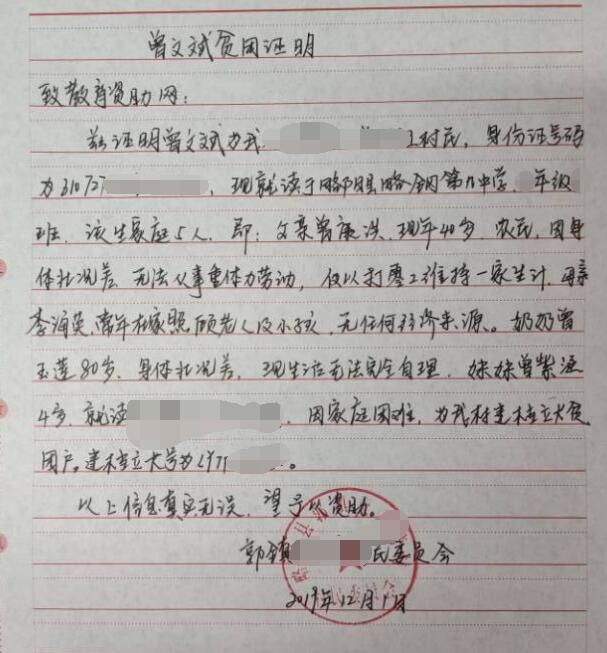 曾文斌贫困证明
致教育资助网：
兹证明曾文斌为我 村民，身份证号码
为 ，现就读于 第九中学， 年级
班，该生家庭5人，即：父亲曾 ，现年40岁，农民，因身
体状况差，无法从事重体力劳动，仅以打零工维持一家生计，母亲
李 英，常年在家照顾老人及小孩，无任何经济来源。奶奶曾
玉莲80岁，身体状况差，现生活无法完全自理，妹妹曾紫
4岁，就读 ，因家庭困难，为我村建档立卡贫
困户。建档立卡号为 。
以上信息真实无误，望予以资助。
郭镇 民委员会
2019年12月1日